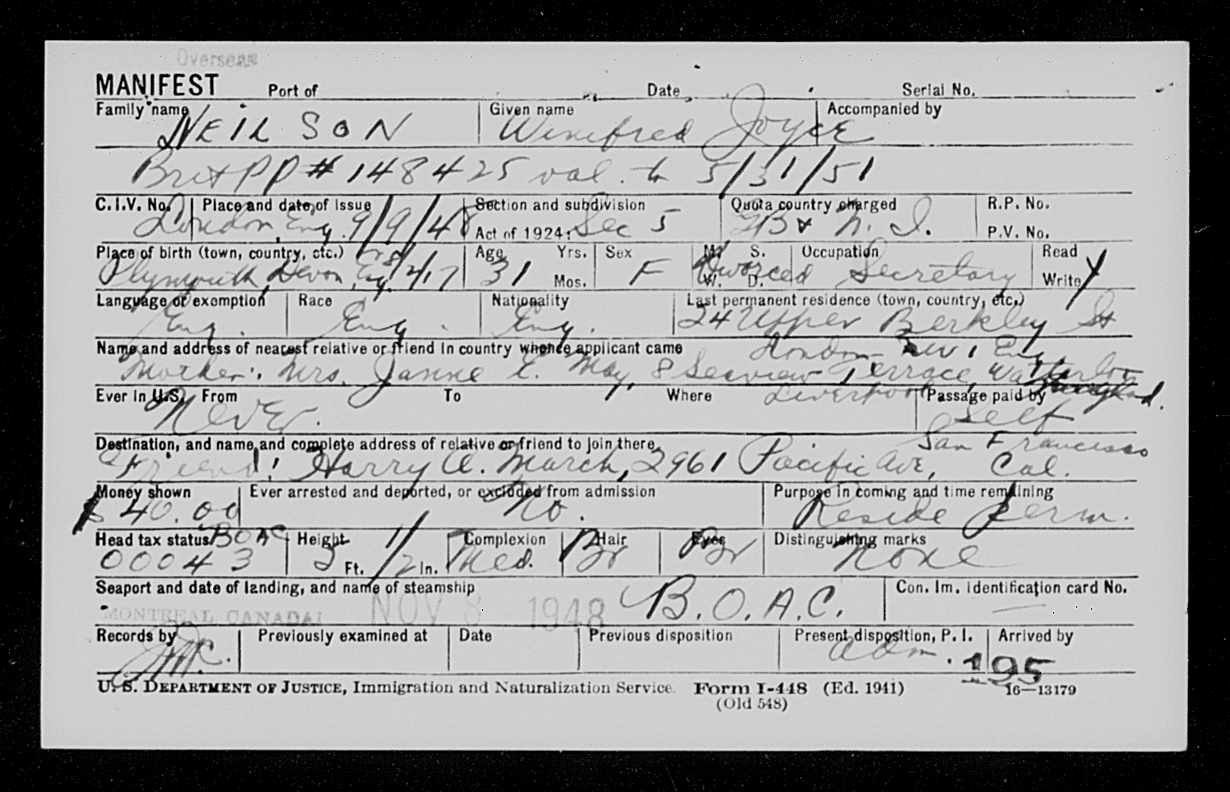 Overseas
MANIFEST Port of Date Serial No.
Family name Given name Accompanied by
NEILSON Winifred Joyce
Brit PP # 148425 val. to 5/31/51
C.I.V. No. Place and date of issue Section and subdivision Quota country charged R.P. No.
London, Eng. 9/9/48 Act of 1924: Sec 5 GB & N. I. P.V. No.
Place of birth (town, country, etc.) Age Yrs. Sex M. S. Occupation Read
Plymouth, Devon, Eng. 31 Mos. F W. D. Divorced Secretary Write y
Language or exemption Race Nationality Last permanent residence (town, country, etc.)
Eng. Eng. Eng. 24 Upper Berkley St
Name and address of nearest relative or friend in country whence applicant came London Eng
Mother: Mrs. Janne E. May, 8 Seaview Terrace, Waterloo
Ever in U.S. From To Where Liverpool Passage paid by
Never. Self
Destination, and name and complete address of relative or friend to join there San Francisco
Friend: Harry A. March, 2961 Pacific Ave, Cal.
Money shown Ever arrested and deported, or excluded from admission Purpose in coming and time remaining
$40.00 No. Reside perm.
Head tax status BOAC Height Complexion Hair Eyes Distinguishing marks
00043 5 Ft. 1/2 In. Med. Br Br None
Seaport and date of landing, and name of steamship Con. Im. identification card No.
MONTREAL CANADA NOV 8 1948 B.O.A.C.
Records by Previously examined at Date Previous disposition Present disposition, P. I. Arrived by
adm. 195
U. S. DEPARTMENT OF JUSTICE, Immigration and Naturalization Service Form I-448 (Ed. 1941) 16—13179
(Old 548)